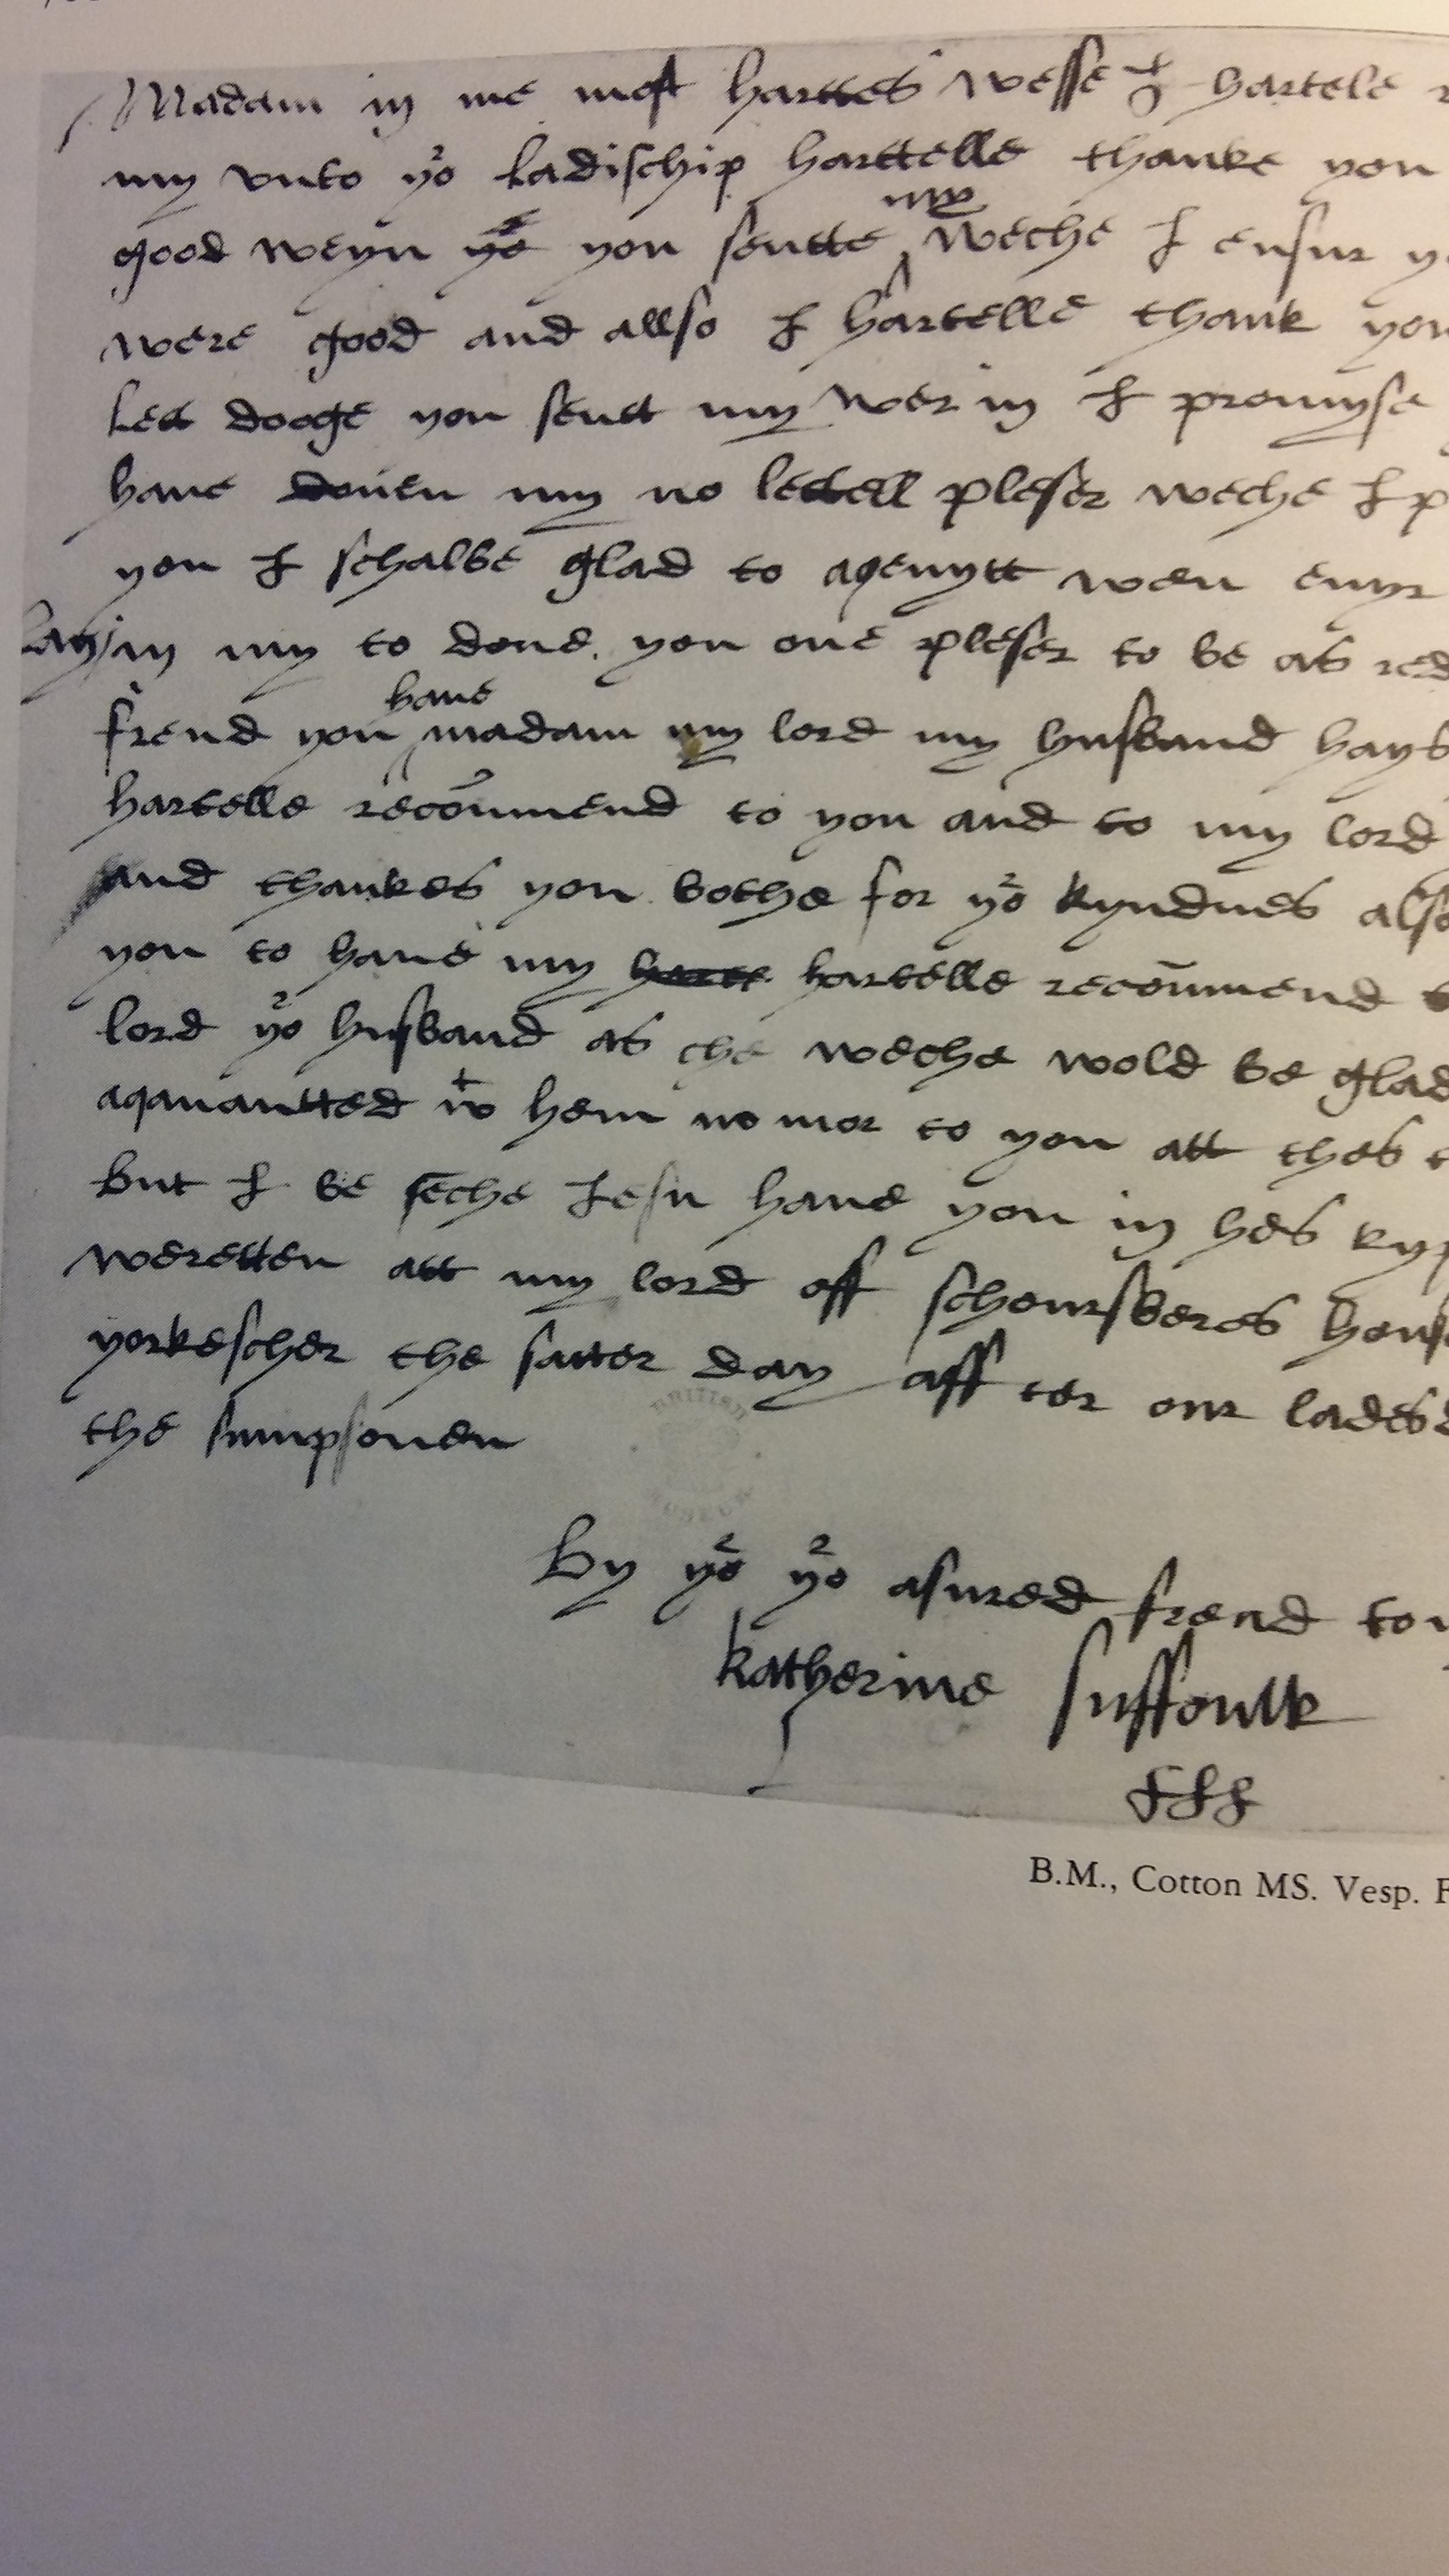 Madam in me most harttes wesse I hartele
my vnto yor Ladischip harttelle thanke you
good weyn you sentte my weche I ensur
were good and allso I hartelle thank you
Lett dooge you sentt my wer in I promyse
have douen my no lettell pleser weche I
you I schalbe glad to aqeuytt wen
Lay in my to done you one pleser to be as
frend you have madam my lord my husband hays
hartelle recommend to you and to my lord
and thankes you bothe for yor kyndnes also
you to have my hartelle recommend
lord yor husband as che weche wold be glad
aqauantted wt hem no mor to you att thes
But I be seche Iesu have you in hes
weretten att my lord off scheursberes
yorkescher the satter day aff ter our lades
the sumpsonen
By yor yor asured frend to
katherine suffoulk
BRITISH MUSEUM
B.M., Cotton MS. Vesp.